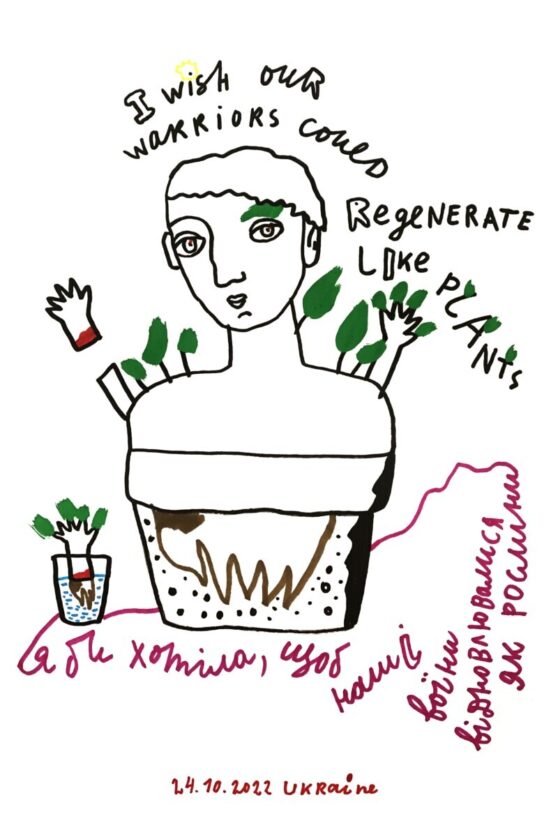 I wish OUR
WARRIORS COULD
REgeNERATE
LIKe PLANTs
я би хотіла, щоб наші
воїни
відновлювалися
як рослини
24.10.2022 UKRaine